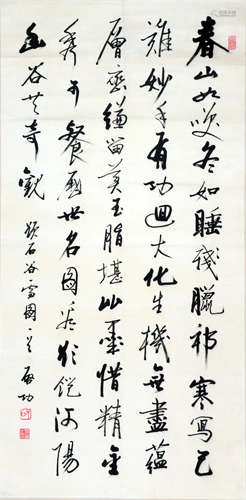 春山如笑冬如睡殘臘祁寒寫已
難妙手有功迴大化生機無盡蘊
層巒縑留美玉脂堪比墨惜精金
秀可餐歷世名圖河陽
幽谷共奇觀
石谷雪圖一首 啟功